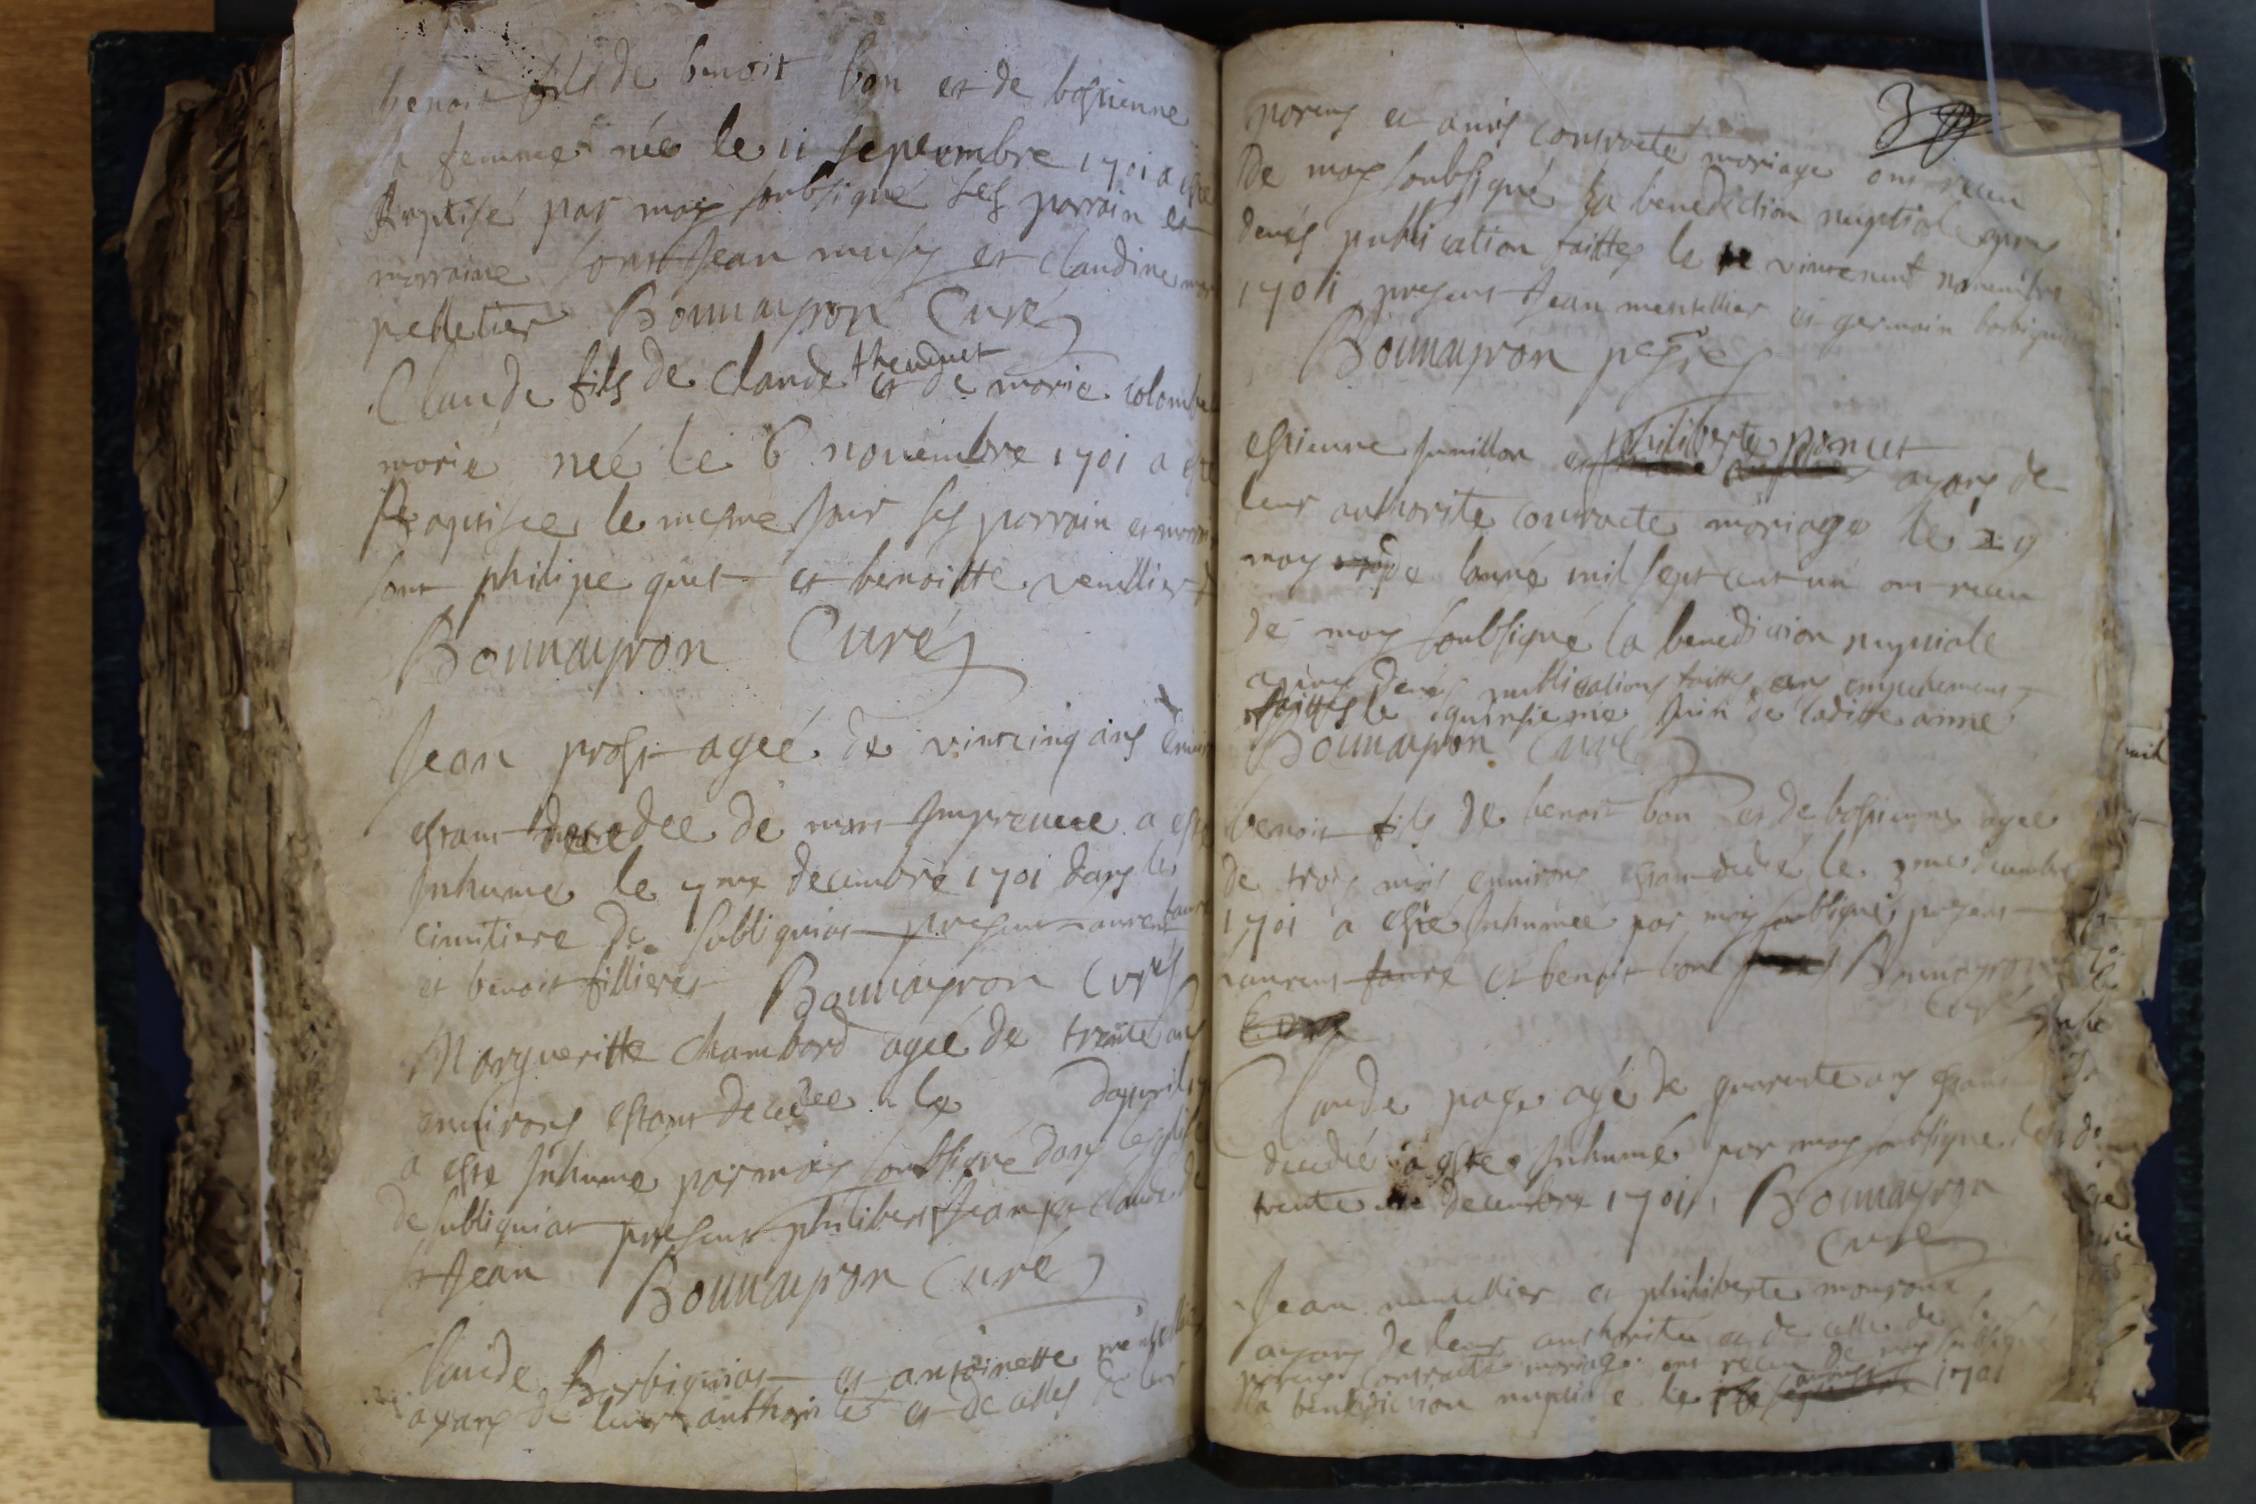 benoit fils de benoit bon et de bostienne
sa femme née le 11 septembre 1701 a esté
Baptisé par moy soubsigné ses parrain et
marraine sont Jean musy et claudine
pelletier Bonnaypron Curé
Claude fils de claude theuduet et de marie colombe
marié née le 6 novembre 1701 a esté
Baptisee le mesme jour ses parrain et marraine
sont philipe quet et benoitte veullier
Bonnaypron Curé
Jean prost ageé de vintcinq ans
estant decedee de mort Impreveue a esté
Inhumé le 7me decembre 1701 dans le
cimitiere de subligniat present laurent faure
et benoit fillieres Bonnaypron Curé
Margueritte chambard ageé de trente ans
environs estant decedee le d'apvril
a esté Inhumé par moy soubsigné dans leglise
de subligniat presents philibert Jean et claude
st Jean Bonnaypron Curé
Claude Barbigniat et antoinette
ayans de leurs authorité et de celles de leur
39
parens et amis contracté mariage ont receu
De moy soubsigné la benediction nuptiale apres
deues publication faittes le vinteneuf novembre
1701 present Jean mentellier et germain barbigniat
Bonnaypron
estienne junillon et philiberte pinnet ayans de
leur authorité contracté mariage le 29
may de lanné mil sept cent un ont receu
de moy soubsigné la benediction nuptiale
apres deues publications faittes sans empechement
faittes le quinsieme juin de laditte anné
Bonnaypron Curé
benoit fils de benoit bon et de bostienne ageé
de trois mois environs estant decedé le 3me decembre
1701 a esté Inhumée par moy soubsigné present
laurent faure et benoit bon Bonnaypron
Curé
Claude page agé de quarente ans estant
decedé a esté Inhumé par moy soubsigné le
trente decembre 1701 Bonnaypron
Curé
Jean mentellier et philiberte
ayans de leur authorité et de celle de
parens contracté mariage ont receu de moy soubsigné
la benediction nuptiale le 1701